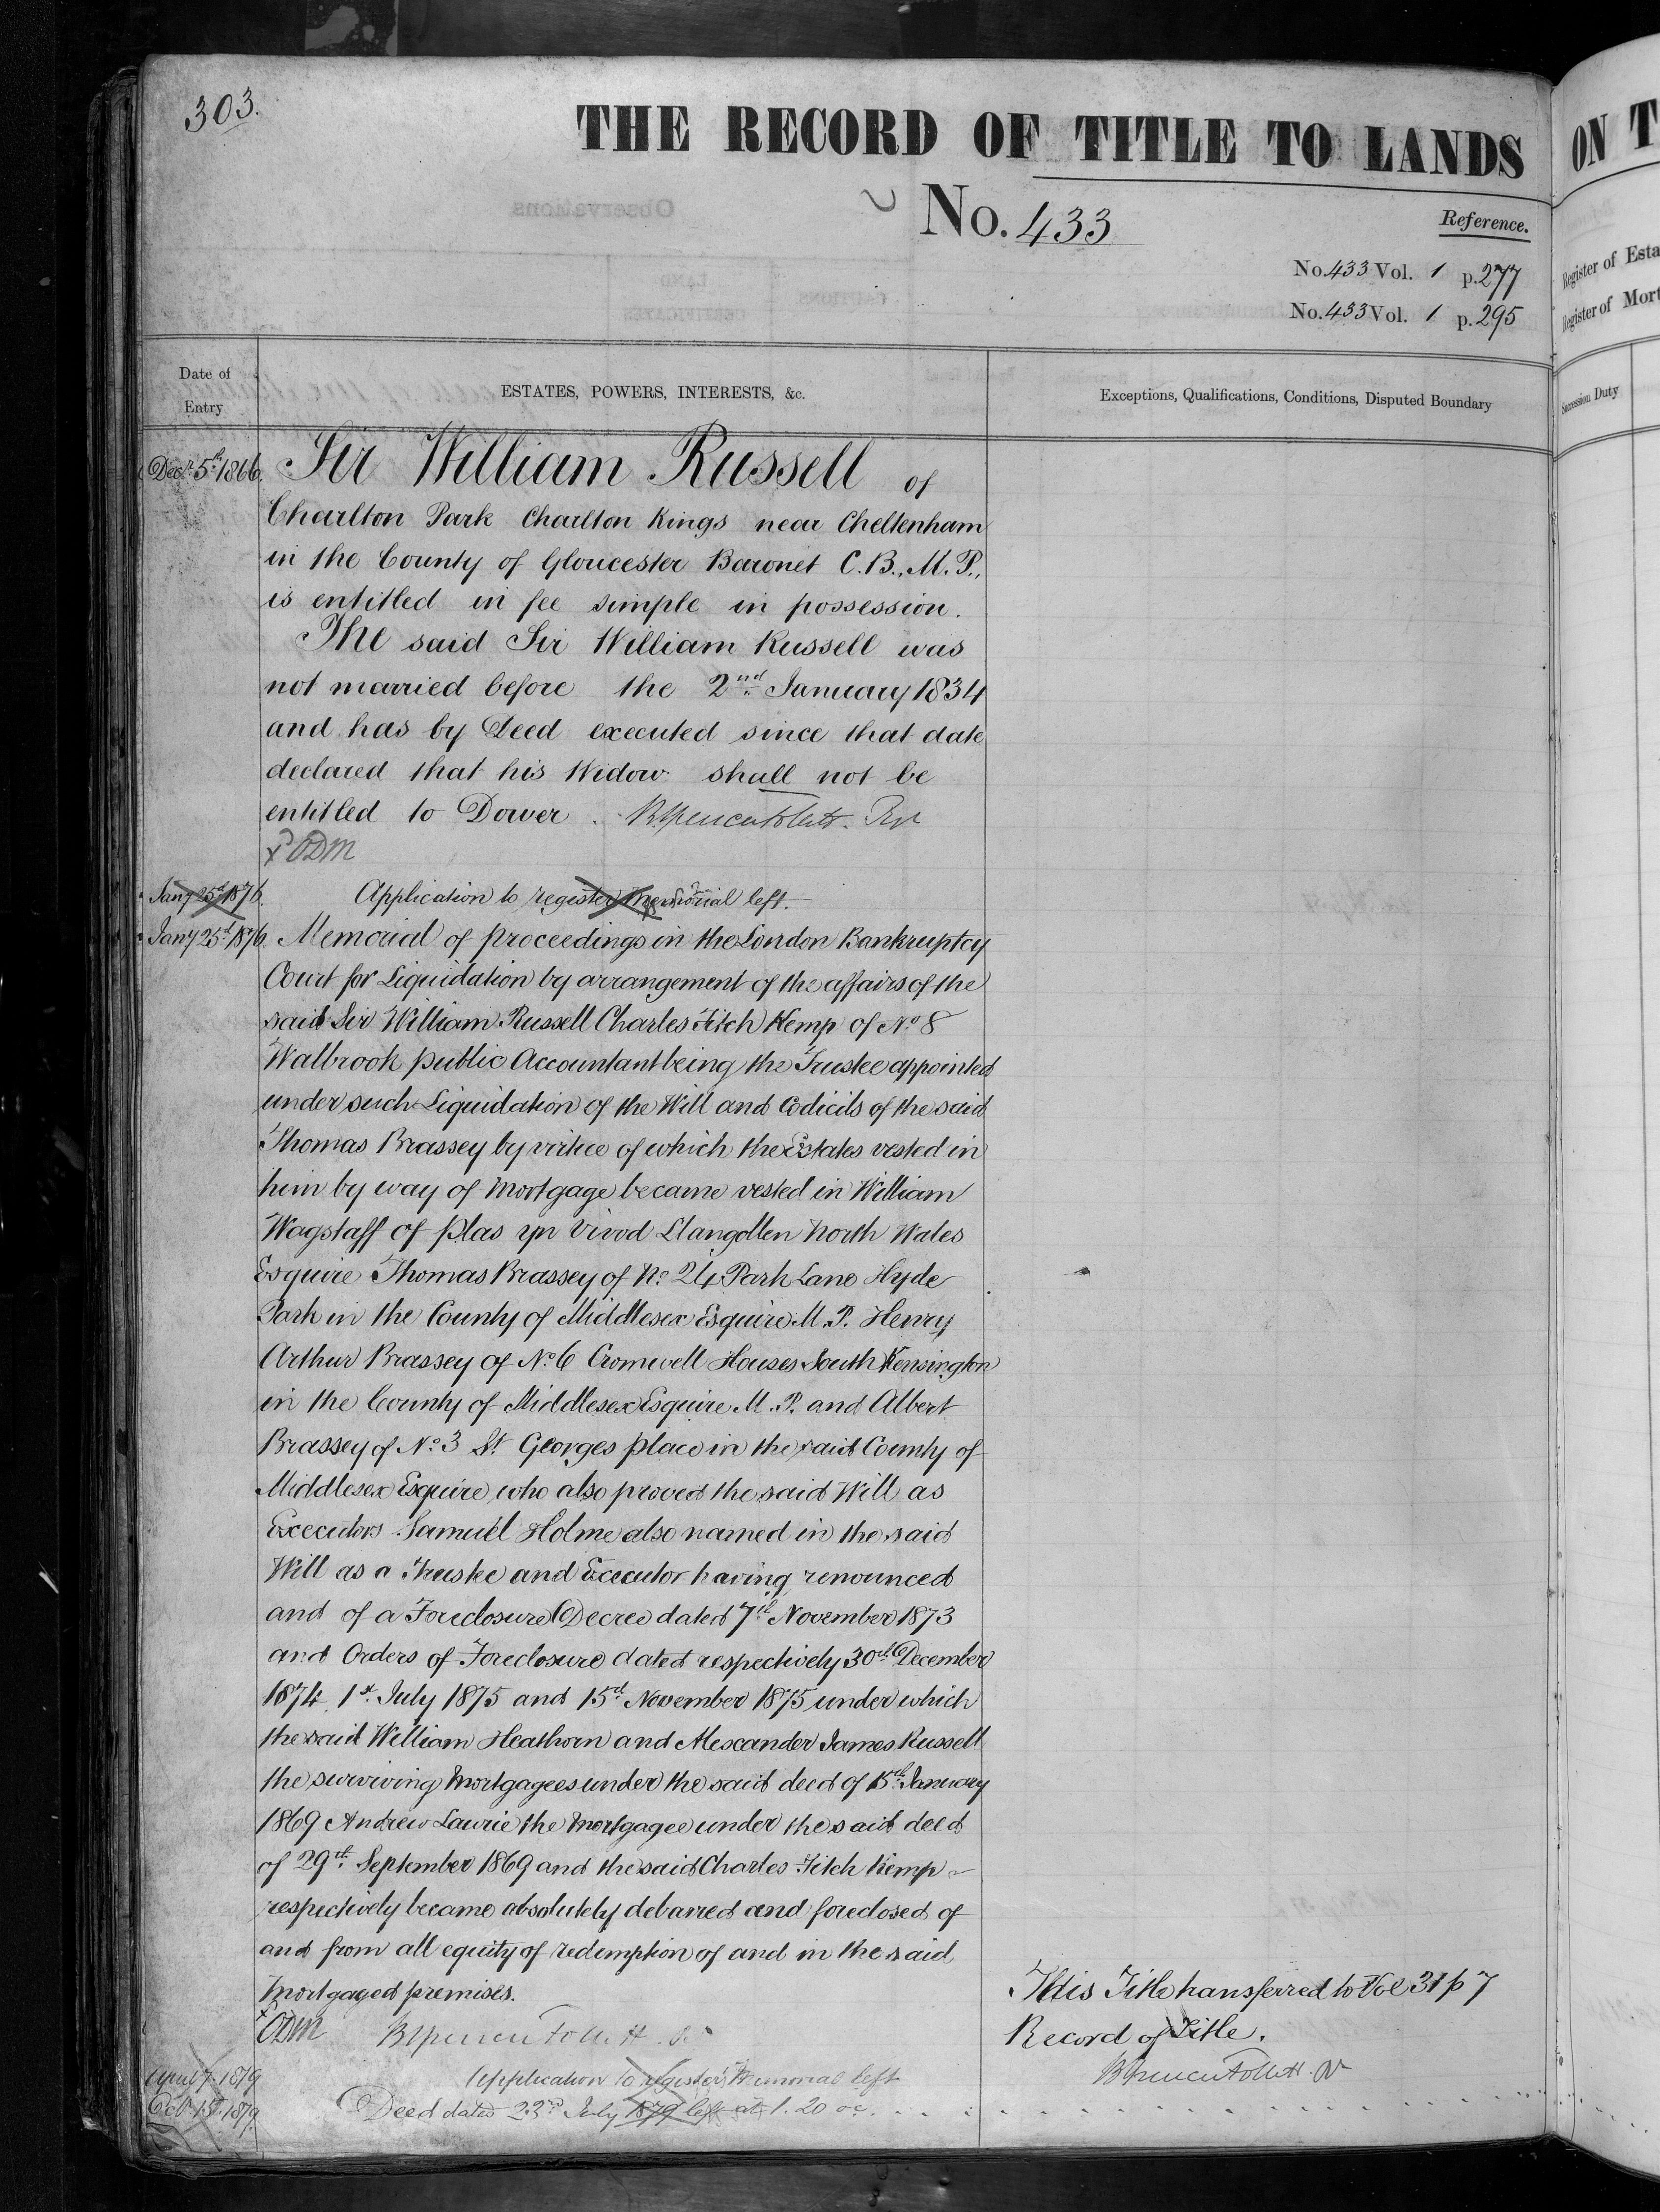 303.
THE RECORD OF TITLE TO LANDS
No. 433
Reference.
No. 433 Vol. 1 p. 277
No. 433 Vol. 1 p. 295
Date of Entry
ESTATES, POWERS, INTERESTS, &c.
Exceptions, Qualifications, Conditions, Disputed Boundary
Decr. 5th 1866. Sir William Russell of
Charlton Park Charlton Kings near Cheltenham
in the County of Gloucester Baronet C.B., M.P.,
is entitled in fee simple in possession.
The said Sir William Russell was
not married before the 2nd January 1834
and has by Deed executed since that date
declared that his Widow shall not be
entitled to Dower. B Spencer Follett.
x ODM
Jany 25th 1876. Application to register Memorial left.
Jany 25th 1876 Memorial of proceedings in the London Bankruptcy
Court for Liquidation by arrangement of the affairs of the
said Sir William Russell Charles Fitch Kemp of No 8
Walbrook public Accountant being the Trustee appointed
under such Liquidation of the Will and Codicils of the said
Thomas Brassey by virtue of which the Estates vested in
him by way of Mortgage became vested in William
Wagstaff of Plas yn Vivod Llangollen North Wales
Esquire Thomas Brassey of No 24 Park Lane Hyde
Park in the County of Middlesex Esquire M.P. Henry
Arthur Brassey of No 6 Cromwell Houses South Kensington
in the County of Middlesex Esquire M.P. and Albert
Brassey of No 3 St. Georges place in the said County of
Middlesex Esquire who also proved the said Will as
Executors Samuel Holme also named in the said
Will as a Trustee and Executor having renounced
and of a Foreclosure Decree dated 7th November 1873
and Orders of Foreclosure dated respectively 30th December
1874, 1st July 1875 and 15th November 1875 under which
the said William Heathorn and Alexander James Russell
the surviving Mortgagees under the said deed of 15th January
1869 Andrew Lawrie the Mortgagee under the said deed
of 29th September 1869 and the said Charles Fitch Kemp
respectively became absolutely debarred and foreclosed of
and from all equity of redemption of and in the said
Mortgaged premises.
x ODM B Spencer Follett.
This Title transferred to Vol 31 p 7
Record of Title.
B Spencer Follett.
April 7. 1879 Application to register Memorial left
Oct 15th 1879 Deed dated 23rd July 1879 left at 1.20 oc.
ON T
Register of Esta
Register of Mort
Succession Duty